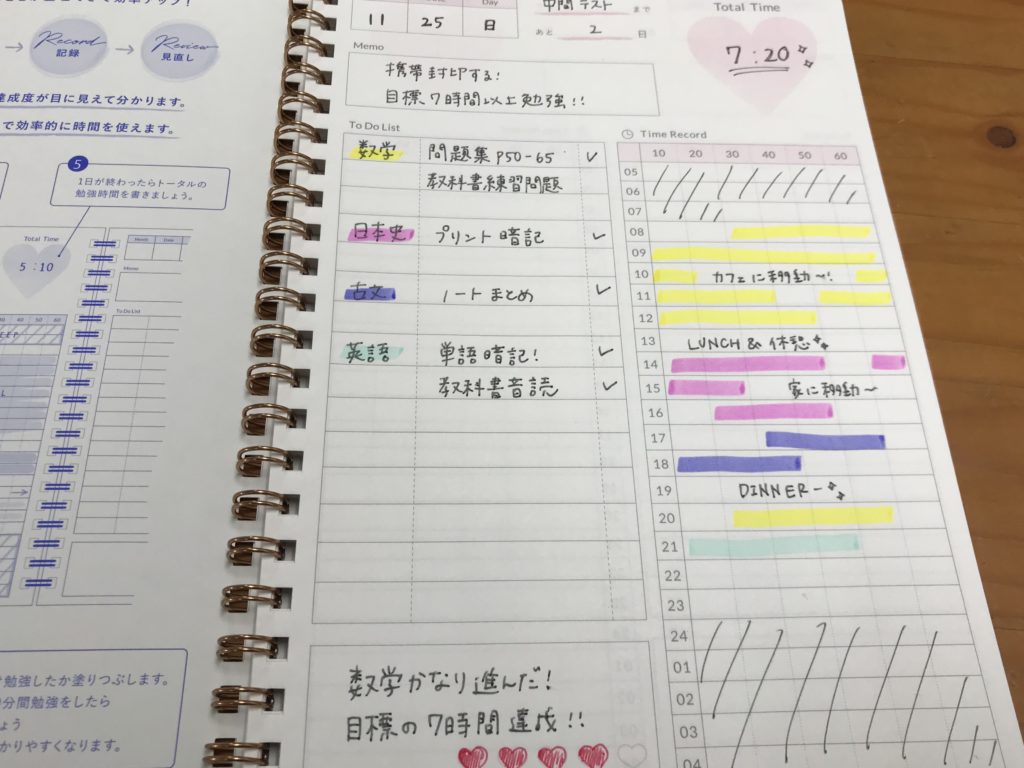 Record
記録
Review
見直し
達成度が目に見えて分かります。
で効率的に時間を使えます。
5
1日が終わったらトータルの
勉強時間を書きましょう。
Total Time
5:10
Memo
To Do List
け勉強したか塗りつぶします。
分間勉強をしたら
しょう
かりやすくなります。
Day
11 25 日
中間テスト まで
あと 2 日
Total Time
7:20
Memo
携帯封印する!
目標7時間以上勉強!!
To Do List
数学 問題集 P50-65 ✓
教科書練習問題
日本史 プリント暗記 ✓
古文 ノートまとめ ✓
英語 単語暗記! ✓
教科書音読 ✓
Time Record
10 20 30 40 50 60
05
06
07
08
09
10 カフェに移動〜!
11
12
13 LUNCH & 休憩
14
15 家に移動〜
16
17
18
19 DINNER〜
20
21
22
23
24
01
02
03
04
数学かなり進んだ!
目標の7時間達成!!